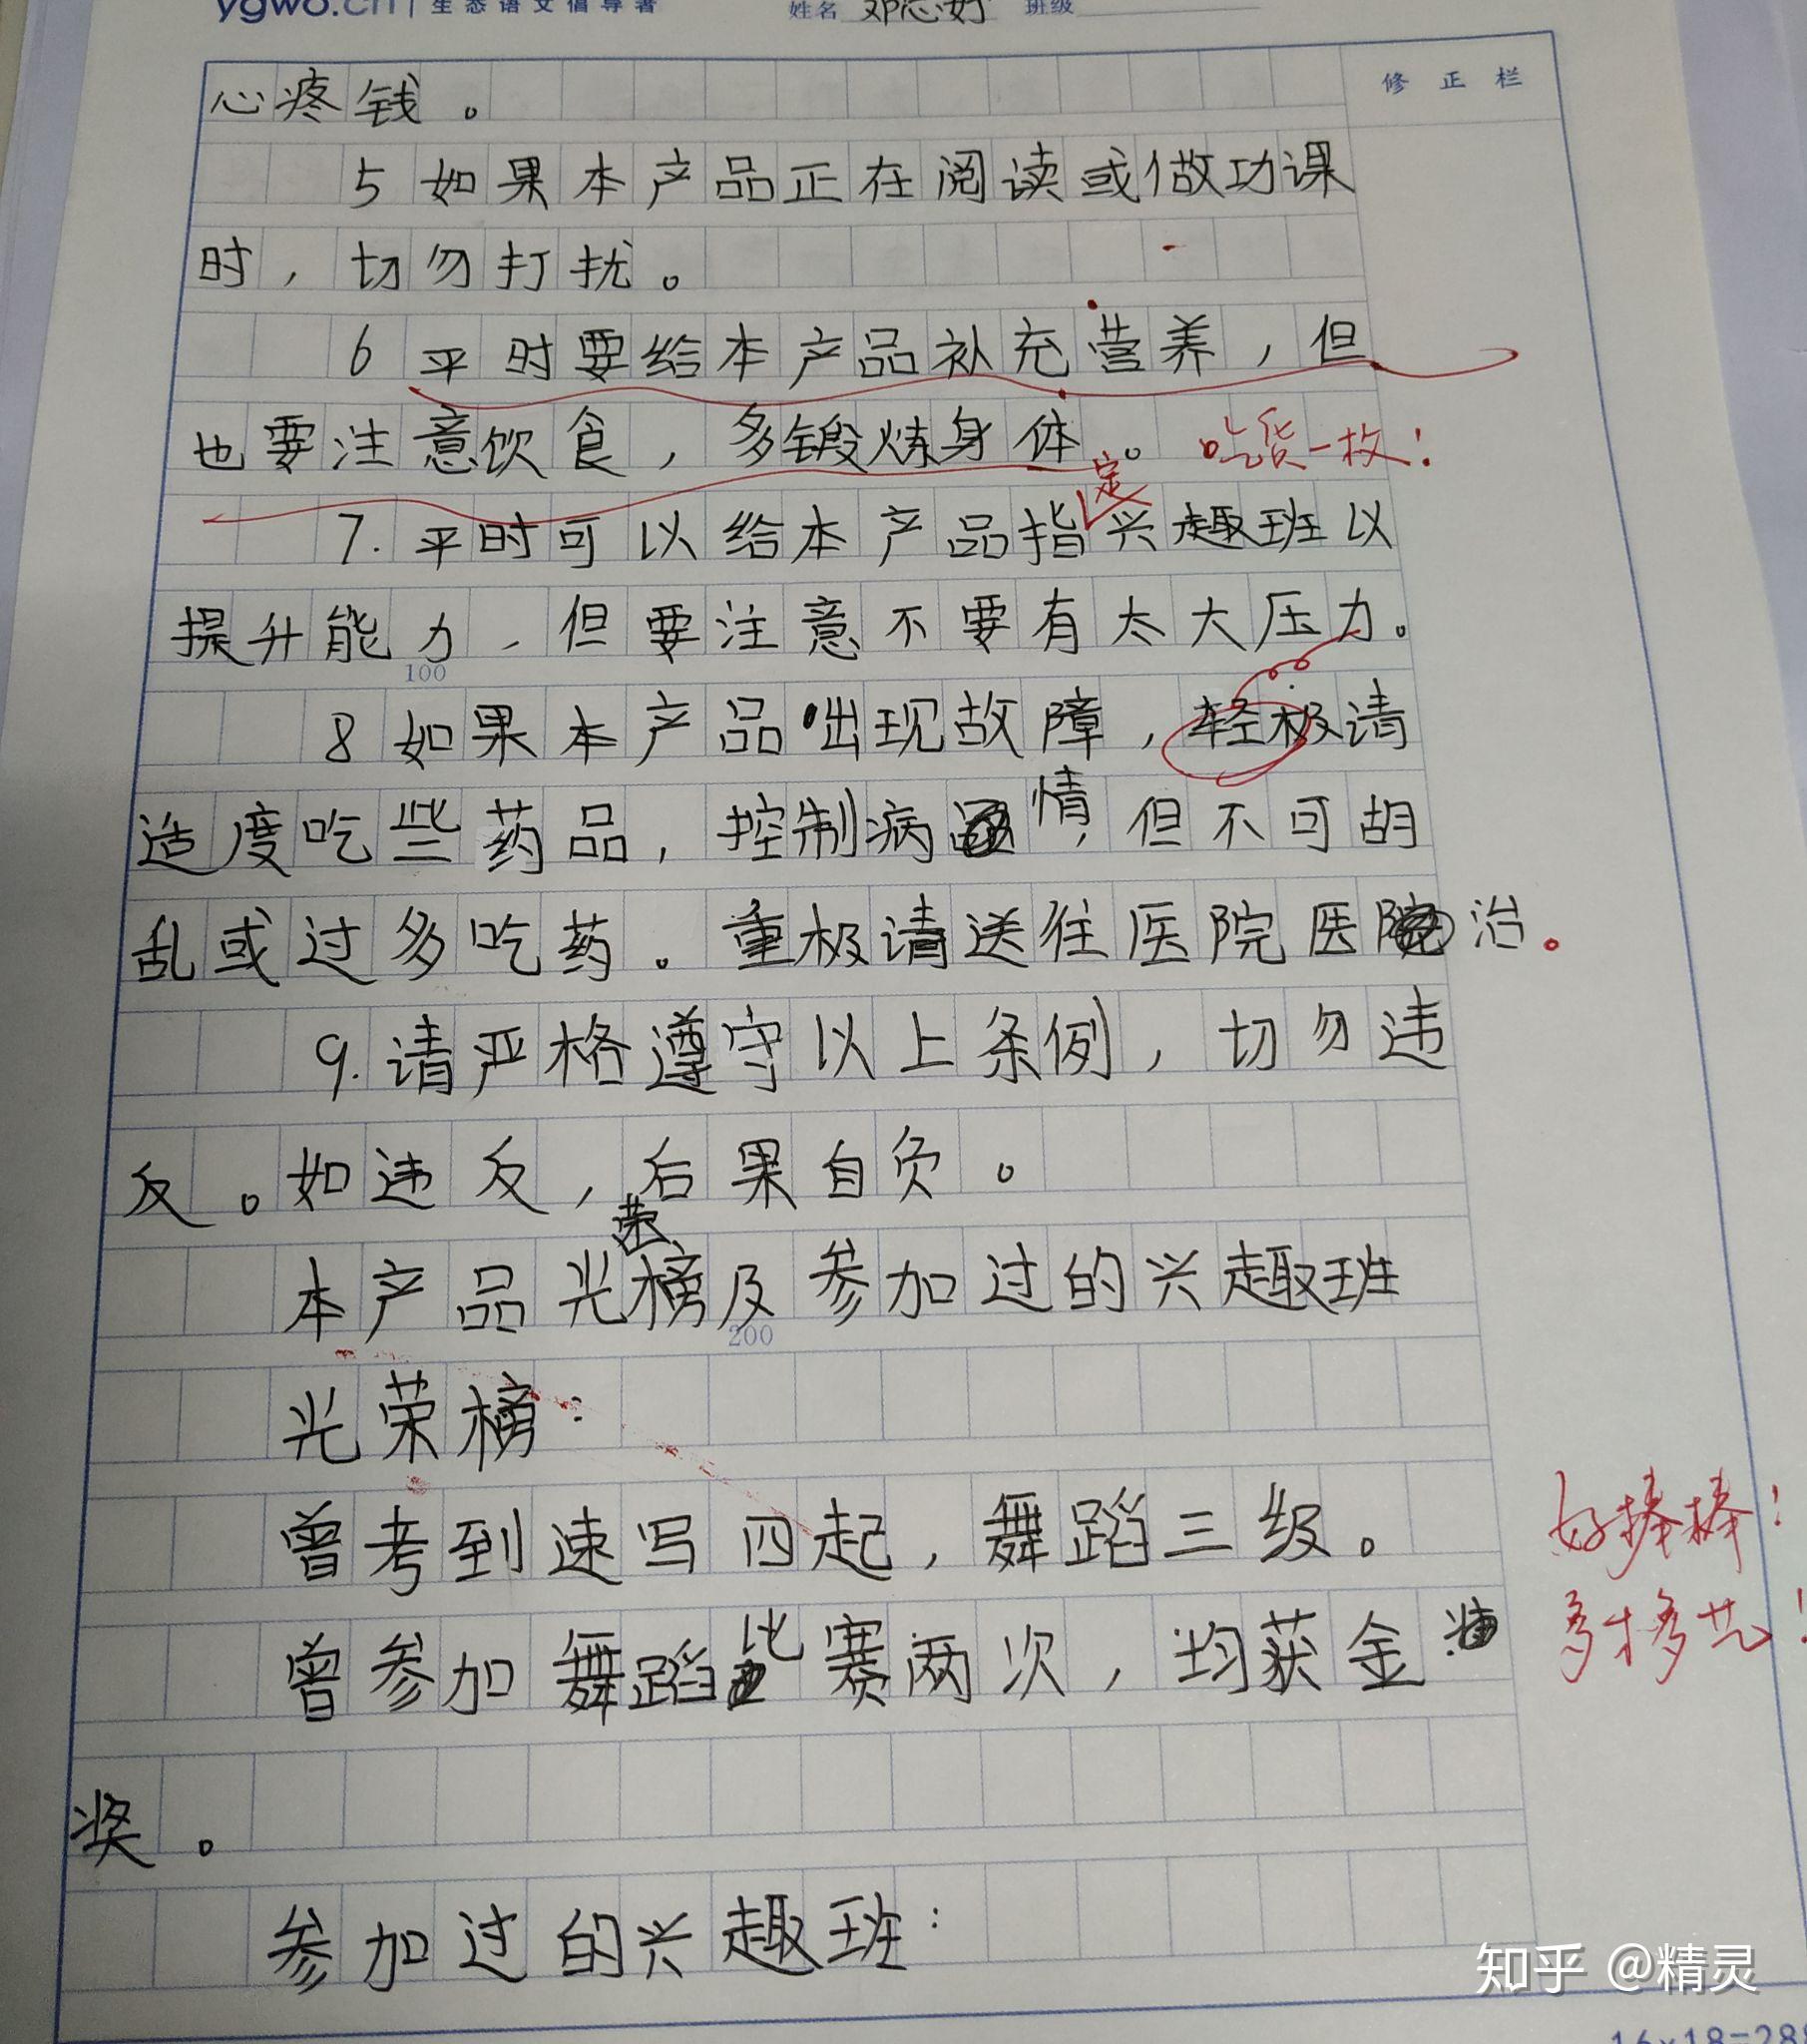 ygwo.cn | 生态语文倡导者 姓名 邓芯妤 班级
修正栏
心疼钱。
5 如果本产品正在阅读或做功课
时，切勿打扰。
6 平时要给本产品补充营养，但
也要注意饮食，多锻炼身体。 吃货一枚！
定
7. 平时可以给本产品指兴趣班以
提升能力，但要注意不要有太大压力。
100
8 如果本产品出现故障，轻极请
适度吃些药品，控制病情，但不可胡
乱或过多吃药。重极请送往医院医治。
9. 请严格遵守以上条例，切勿违
反。如违反，后果自负。
荣
本产品光榜及参加过的兴趣班
200
光荣榜：
曾考到速写四起，舞蹈三级。
好捧捧！
曾参加舞蹈比赛两次，均获金
多才多艺！
奖。
参加过的兴趣班：
知乎 @精灵